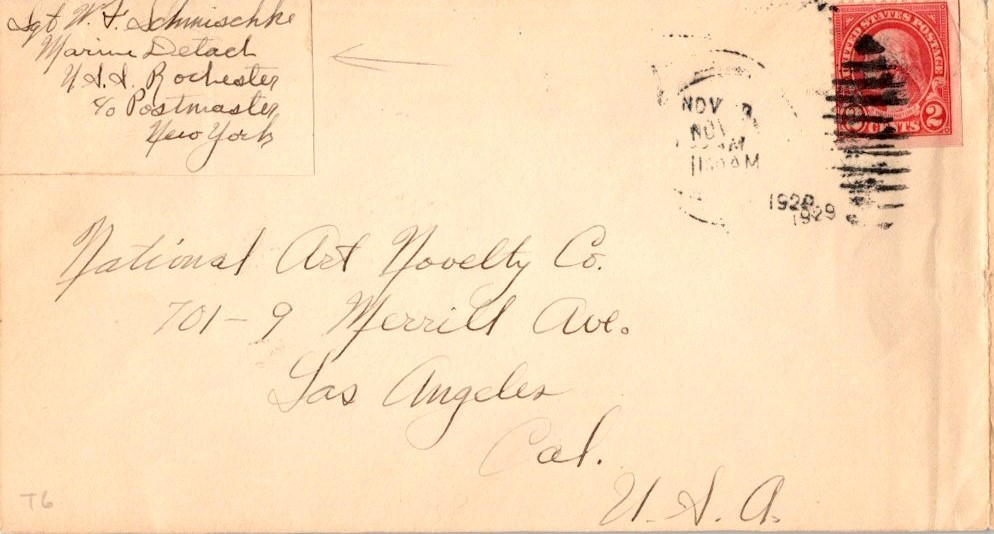 Sgt W. F. Schmischke
Marine Detach
U.S.S. Rochester
c/o Postmaster
New York
UNITED STATES POSTAGE
2 CENTS 2
NOV 3
NOV
AM
11 AM
1929
1929
National Art Novelty Co.
701-9 Merrill Ave.
Los Angeles
Cal.
U.S.A.
T6